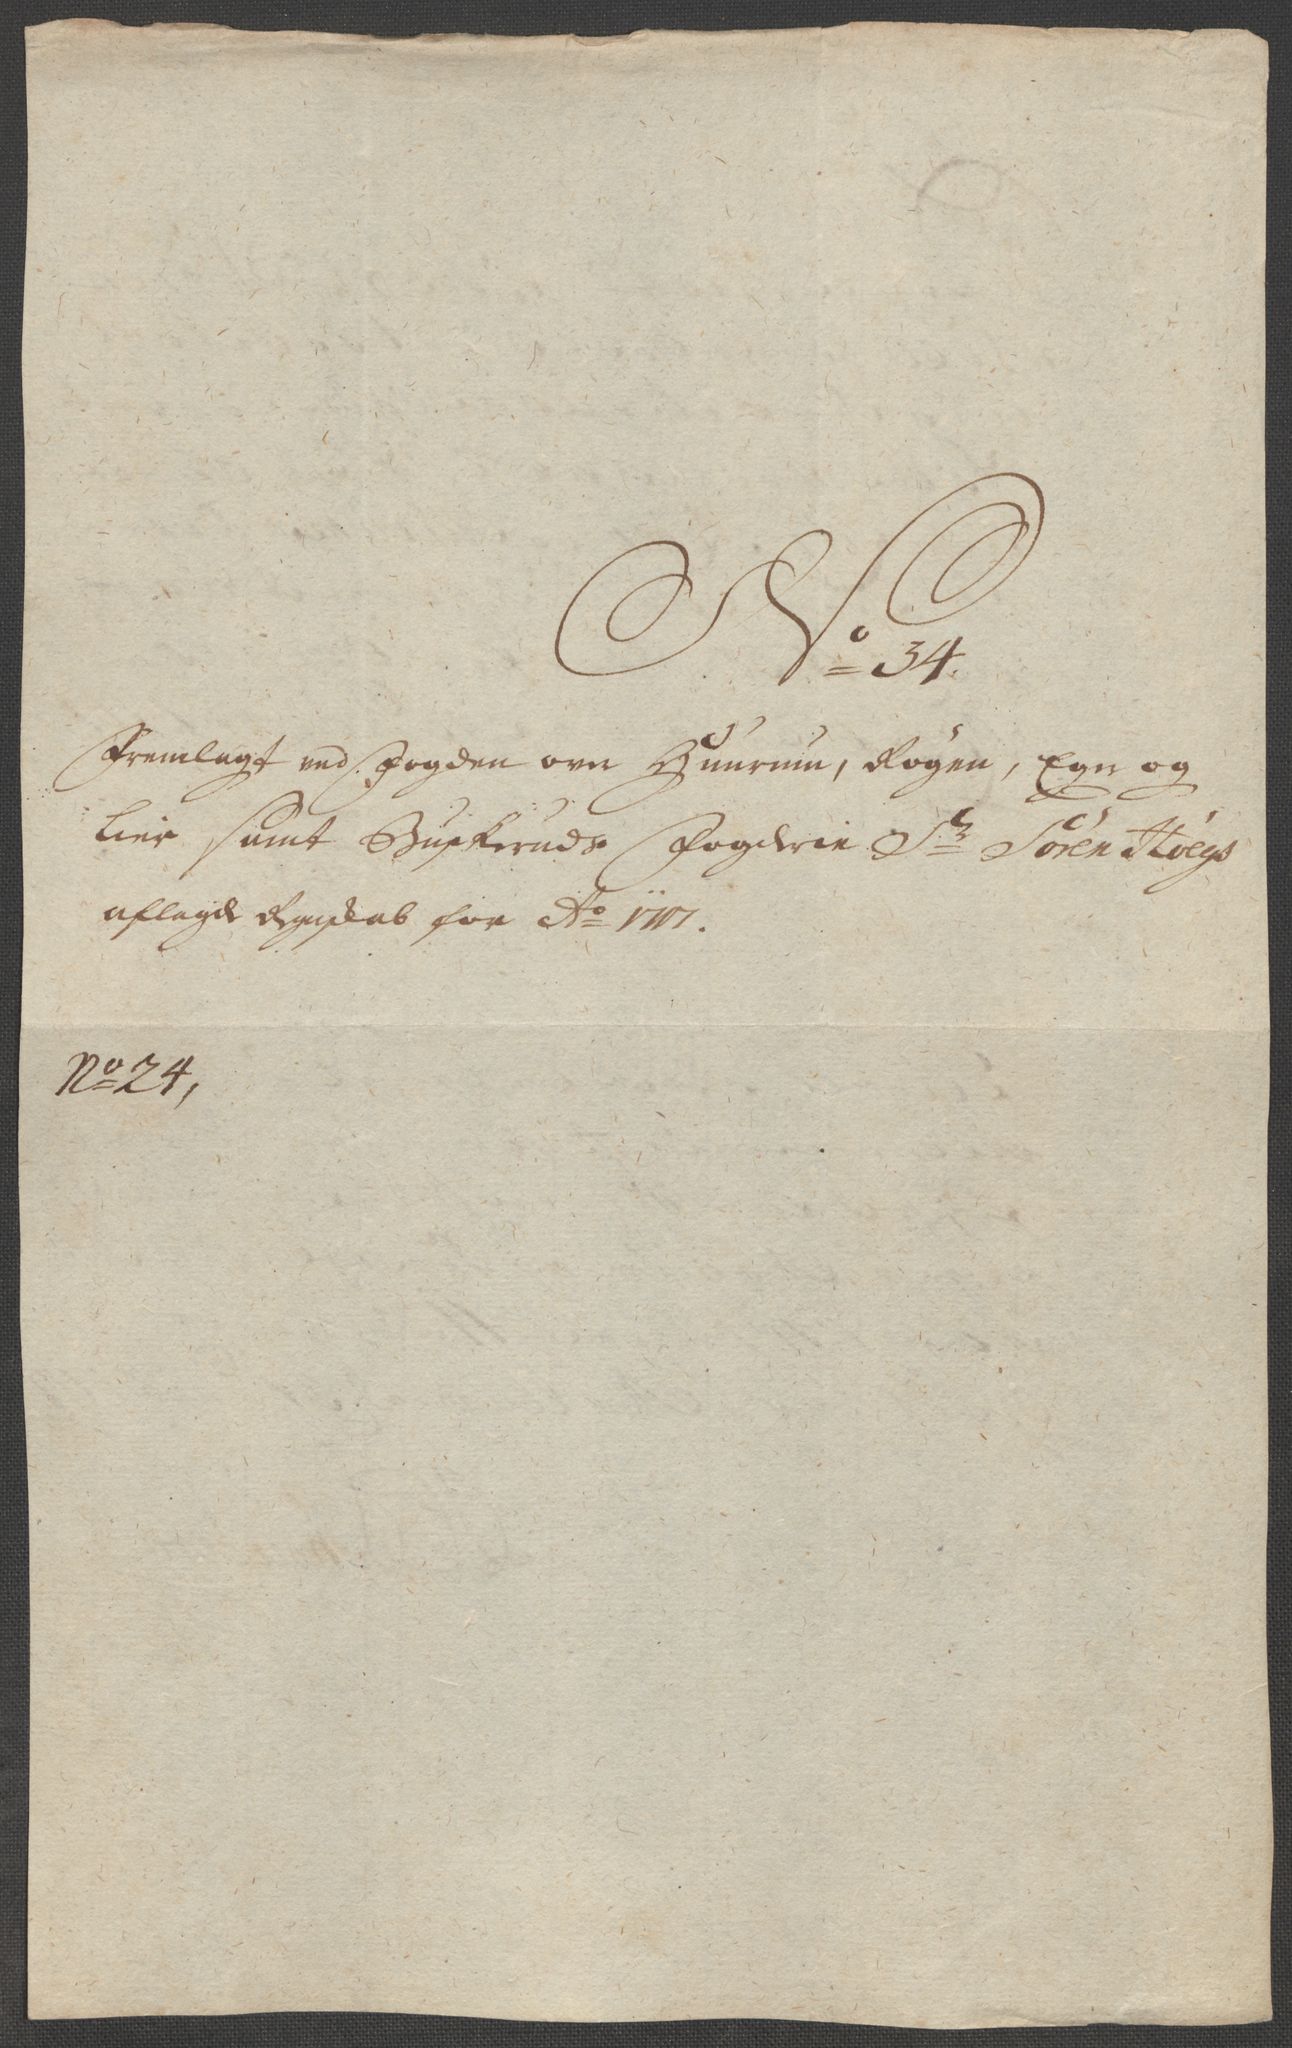 No 34.
Fremlagt ved Fogden over Huurum, Røgen, Eger og
Lier samt Buskeruds Fogderie Sr Sören Hoegs
aflagde Regnskab for Ao 1717.
No 24,